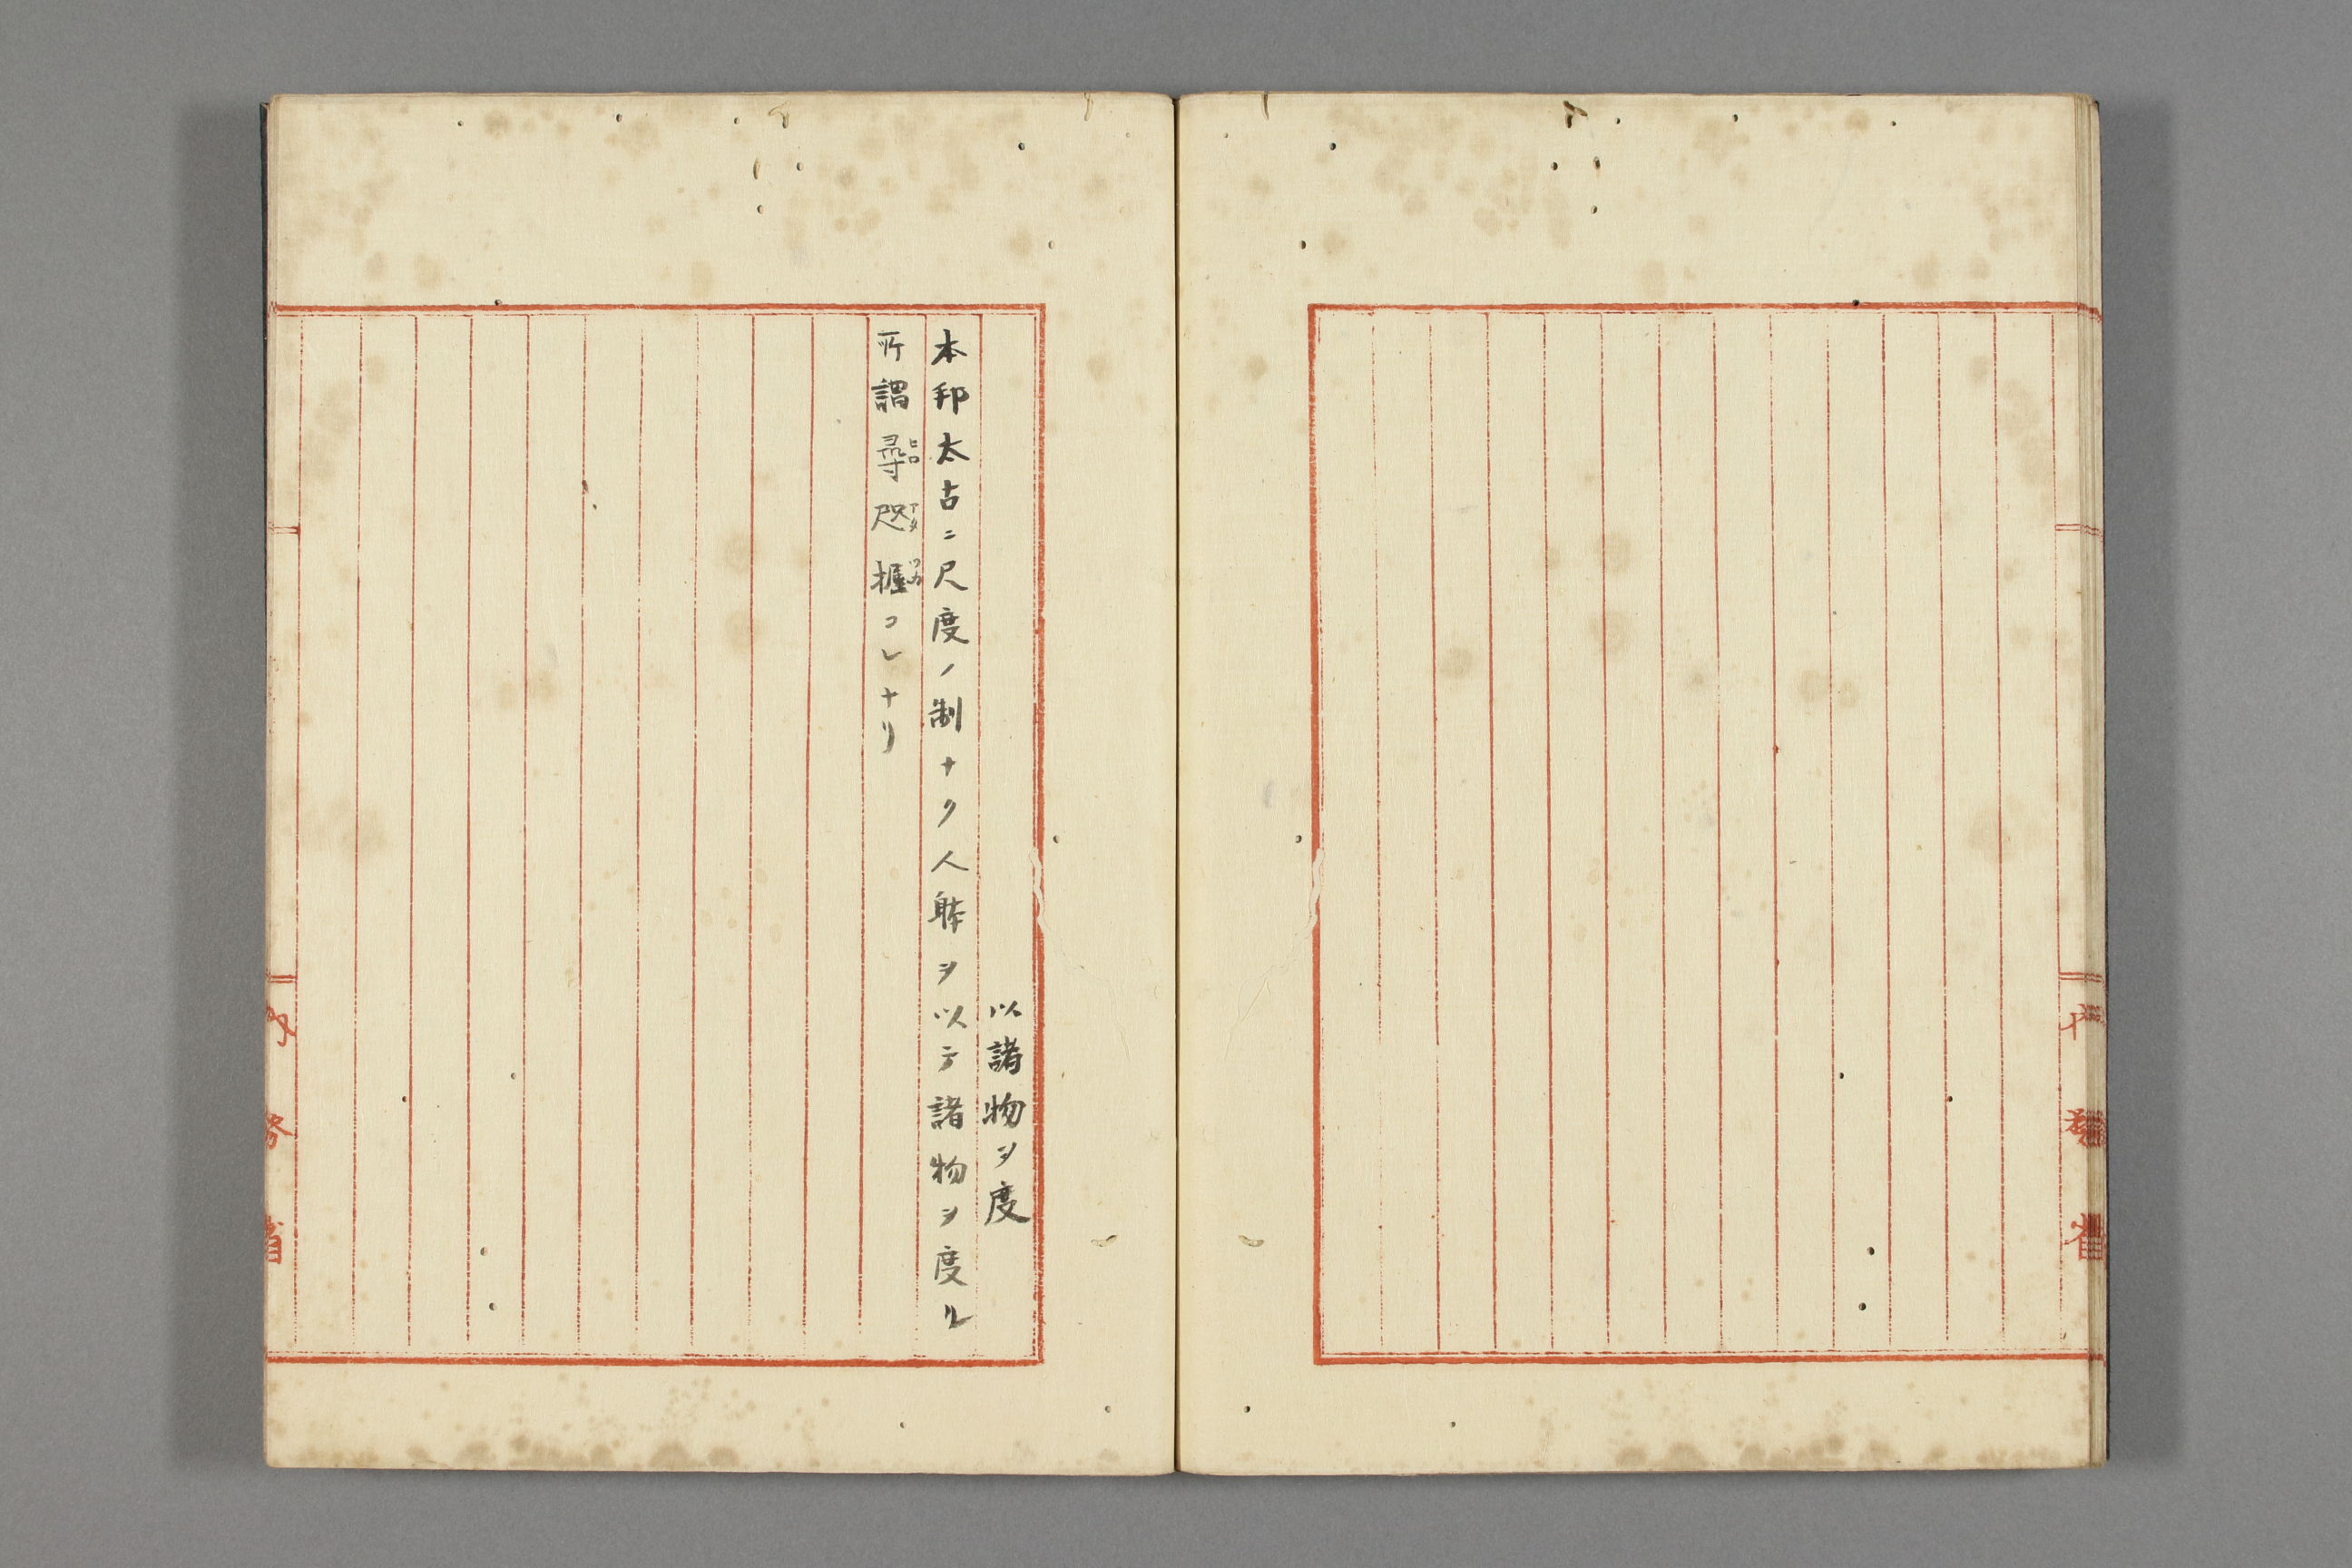 内務省
以諸物ヲ度
本邦太古ニ尺度ノ制ナク人躰ヲ以テ諸物ヲ度ル
所謂尋咫握コレナリ
ヒロ
アタ
ツカ
内務省